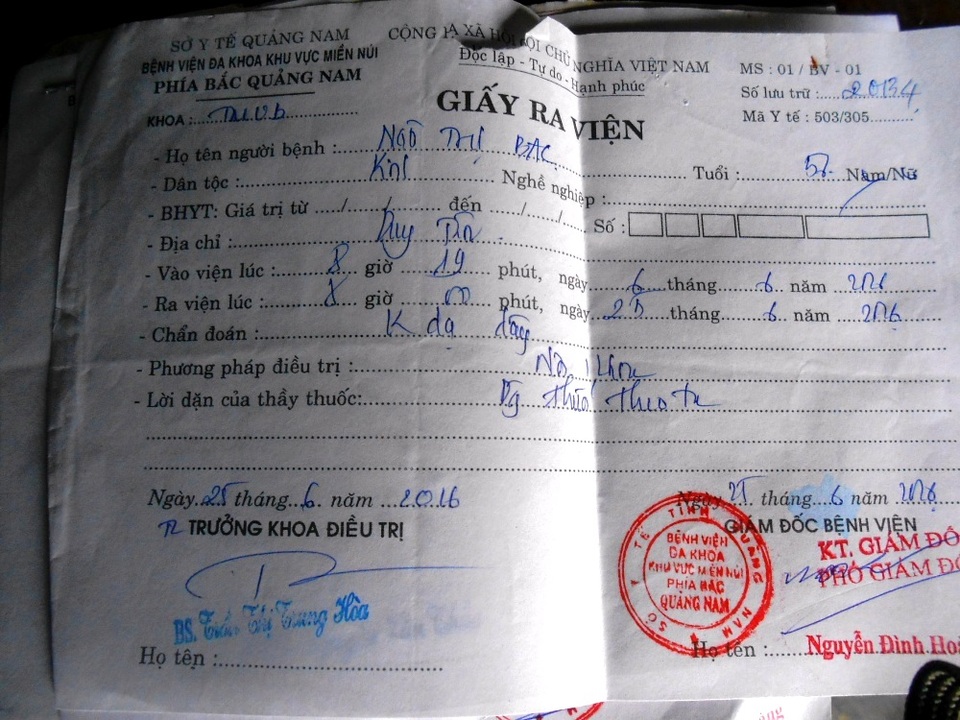 SỞ Y TẾ QUẢNG NAM
BỆNH VIỆN ĐA KHOA KHU VỰC MIỀN NÚI
PHÍA BẮC QUẢNG NAM
KHOA :
CỘNG HÒA XÃ HỘI CHỦ NGHĨA VIỆT NAM
Độc lập - Tự do - Hạnh phúc
MS : 01 / BV - 01
Số lưu trữ : 20134
Mã Y tế : 503/305
GIẤY RA VIỆN
- Họ tên người bệnh : NGÔ BẮC
Tuổi : Nam/Nữ
- Dân tộc : Kinh Nghề nghiệp :
- BHYT: Giá trị từ ..../..../.... đến ..../..../.... Số :
- Địa chỉ : Duy
- Vào viện lúc : 8 giờ 19 phút, ngày 6 tháng 6 năm 2016
- Ra viện lúc : 8 giờ 00 phút, ngày 25 tháng 6 năm 2016
- Chẩn đoán : K dạ dày
- Phương pháp điều trị : Nội khoa
- Lời dặn của thầy thuốc: thuốc theo
Ngày 25 tháng 6 năm 2016
TL TRƯỞNG KHOA ĐIỀU TRỊ
BS. Trần Thị Trung Hòa
Họ tên :
Ngày 25 tháng 6 năm 2016
GIÁM ĐỐC BỆNH VIỆN
KT. GIÁM ĐỐ
PHÓ GIÁM ĐỐ
SỞ Y TẾ TỈNH QUẢNG NAM
BỆNH VIỆN
ĐA KHOA
KHU VỰC MIỀN NÚI
PHÍA BẮC
QUẢNG NAM
Họ tên : Nguyễn Đình Hoà